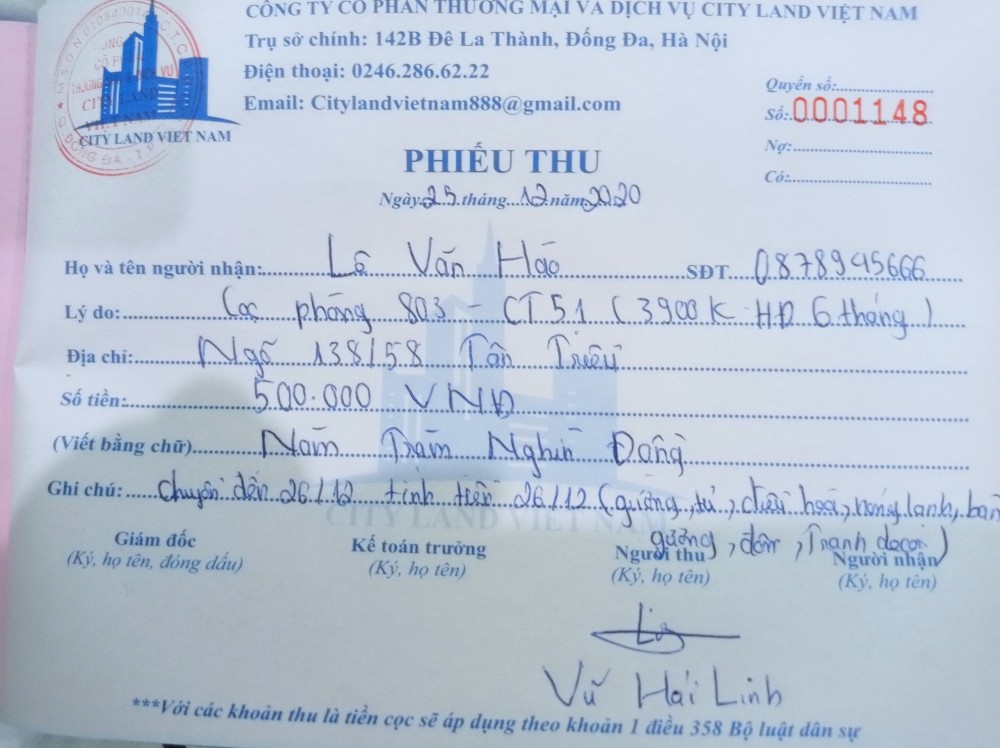 CÔNG TY CỔ PHẦN THƯƠNG MẠI VÀ DỊCH VỤ CITY LAND VIỆT NAM
Trụ sở chính: 142B Đê La Thành, Đống Đa, Hà Nội
Điện thoại: 0246.286.62.22
Email: Citylandvietnam888@gmail.com
CITY LAND VIET NAM
Quyển số:
Số: 0001148
Nợ:
Có:
PHIẾU THU
Ngày 25 tháng 12 năm 2020
Họ và tên người nhận: Lê Văn Hảo SĐT 0878945666
Lý do: Cọc phòng 803 - CT51 (3900K HĐ 6 tháng)
Địa chỉ: Ngõ 138/58 Tân Triều
Số tiền: 500.000 VNĐ
(Viết bằng chữ) Năm Trăm Nghìn Đồng
Ghi chú: chuyển đến 26/12 tính tiền 26/12 (giường, tủ, điều hoà, nóng lạnh, bàn
gương, đôn, Tranh decor)
Giám đốc Kế toán trưởng Người thu Người nhận
(Ký, họ tên, đóng dấu) (Ký, họ tên) (Ký, họ tên) (Ký, họ tên)
Vũ Hải Linh
***Với các khoản thu là tiền cọc sẽ áp dụng theo khoản 1 điều 358 Bộ luật dân sự